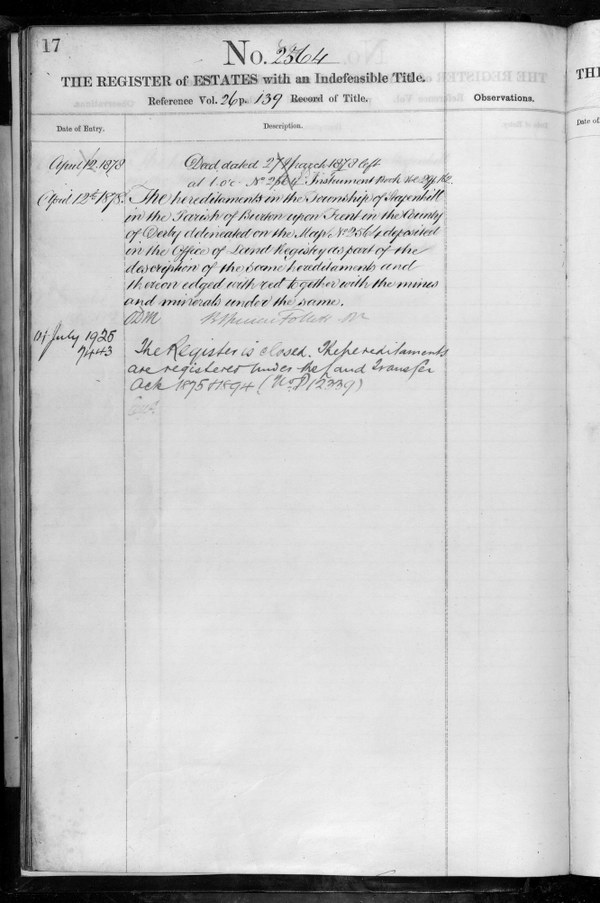 17
No. 2564
THE REGISTER of ESTATES with an Indefeasible Title.
Reference Vol. 26 p. 139 Record of Title.
Observations.
Date of Entry.
Description.
April 12 1878
Deed dated 27 March 1878 left
at L.o'c No 2564 Instrument Book
April 12th 1878.
The hereditaments in the Township of Stapenhill
in the Parish of Burton upon Trent in the County
of Derby delineated on the Map No 2564 deposited
in the Office of Land Registry as part of the
description of the same hereditaments and
thereon edged with red together with the mines
and minerals under the same.
July 1925
7443
The Register is closed. The hereditaments
are registered under the Land Transfer
Acts 1875 & 1897 (No P12339)
THE
Date of